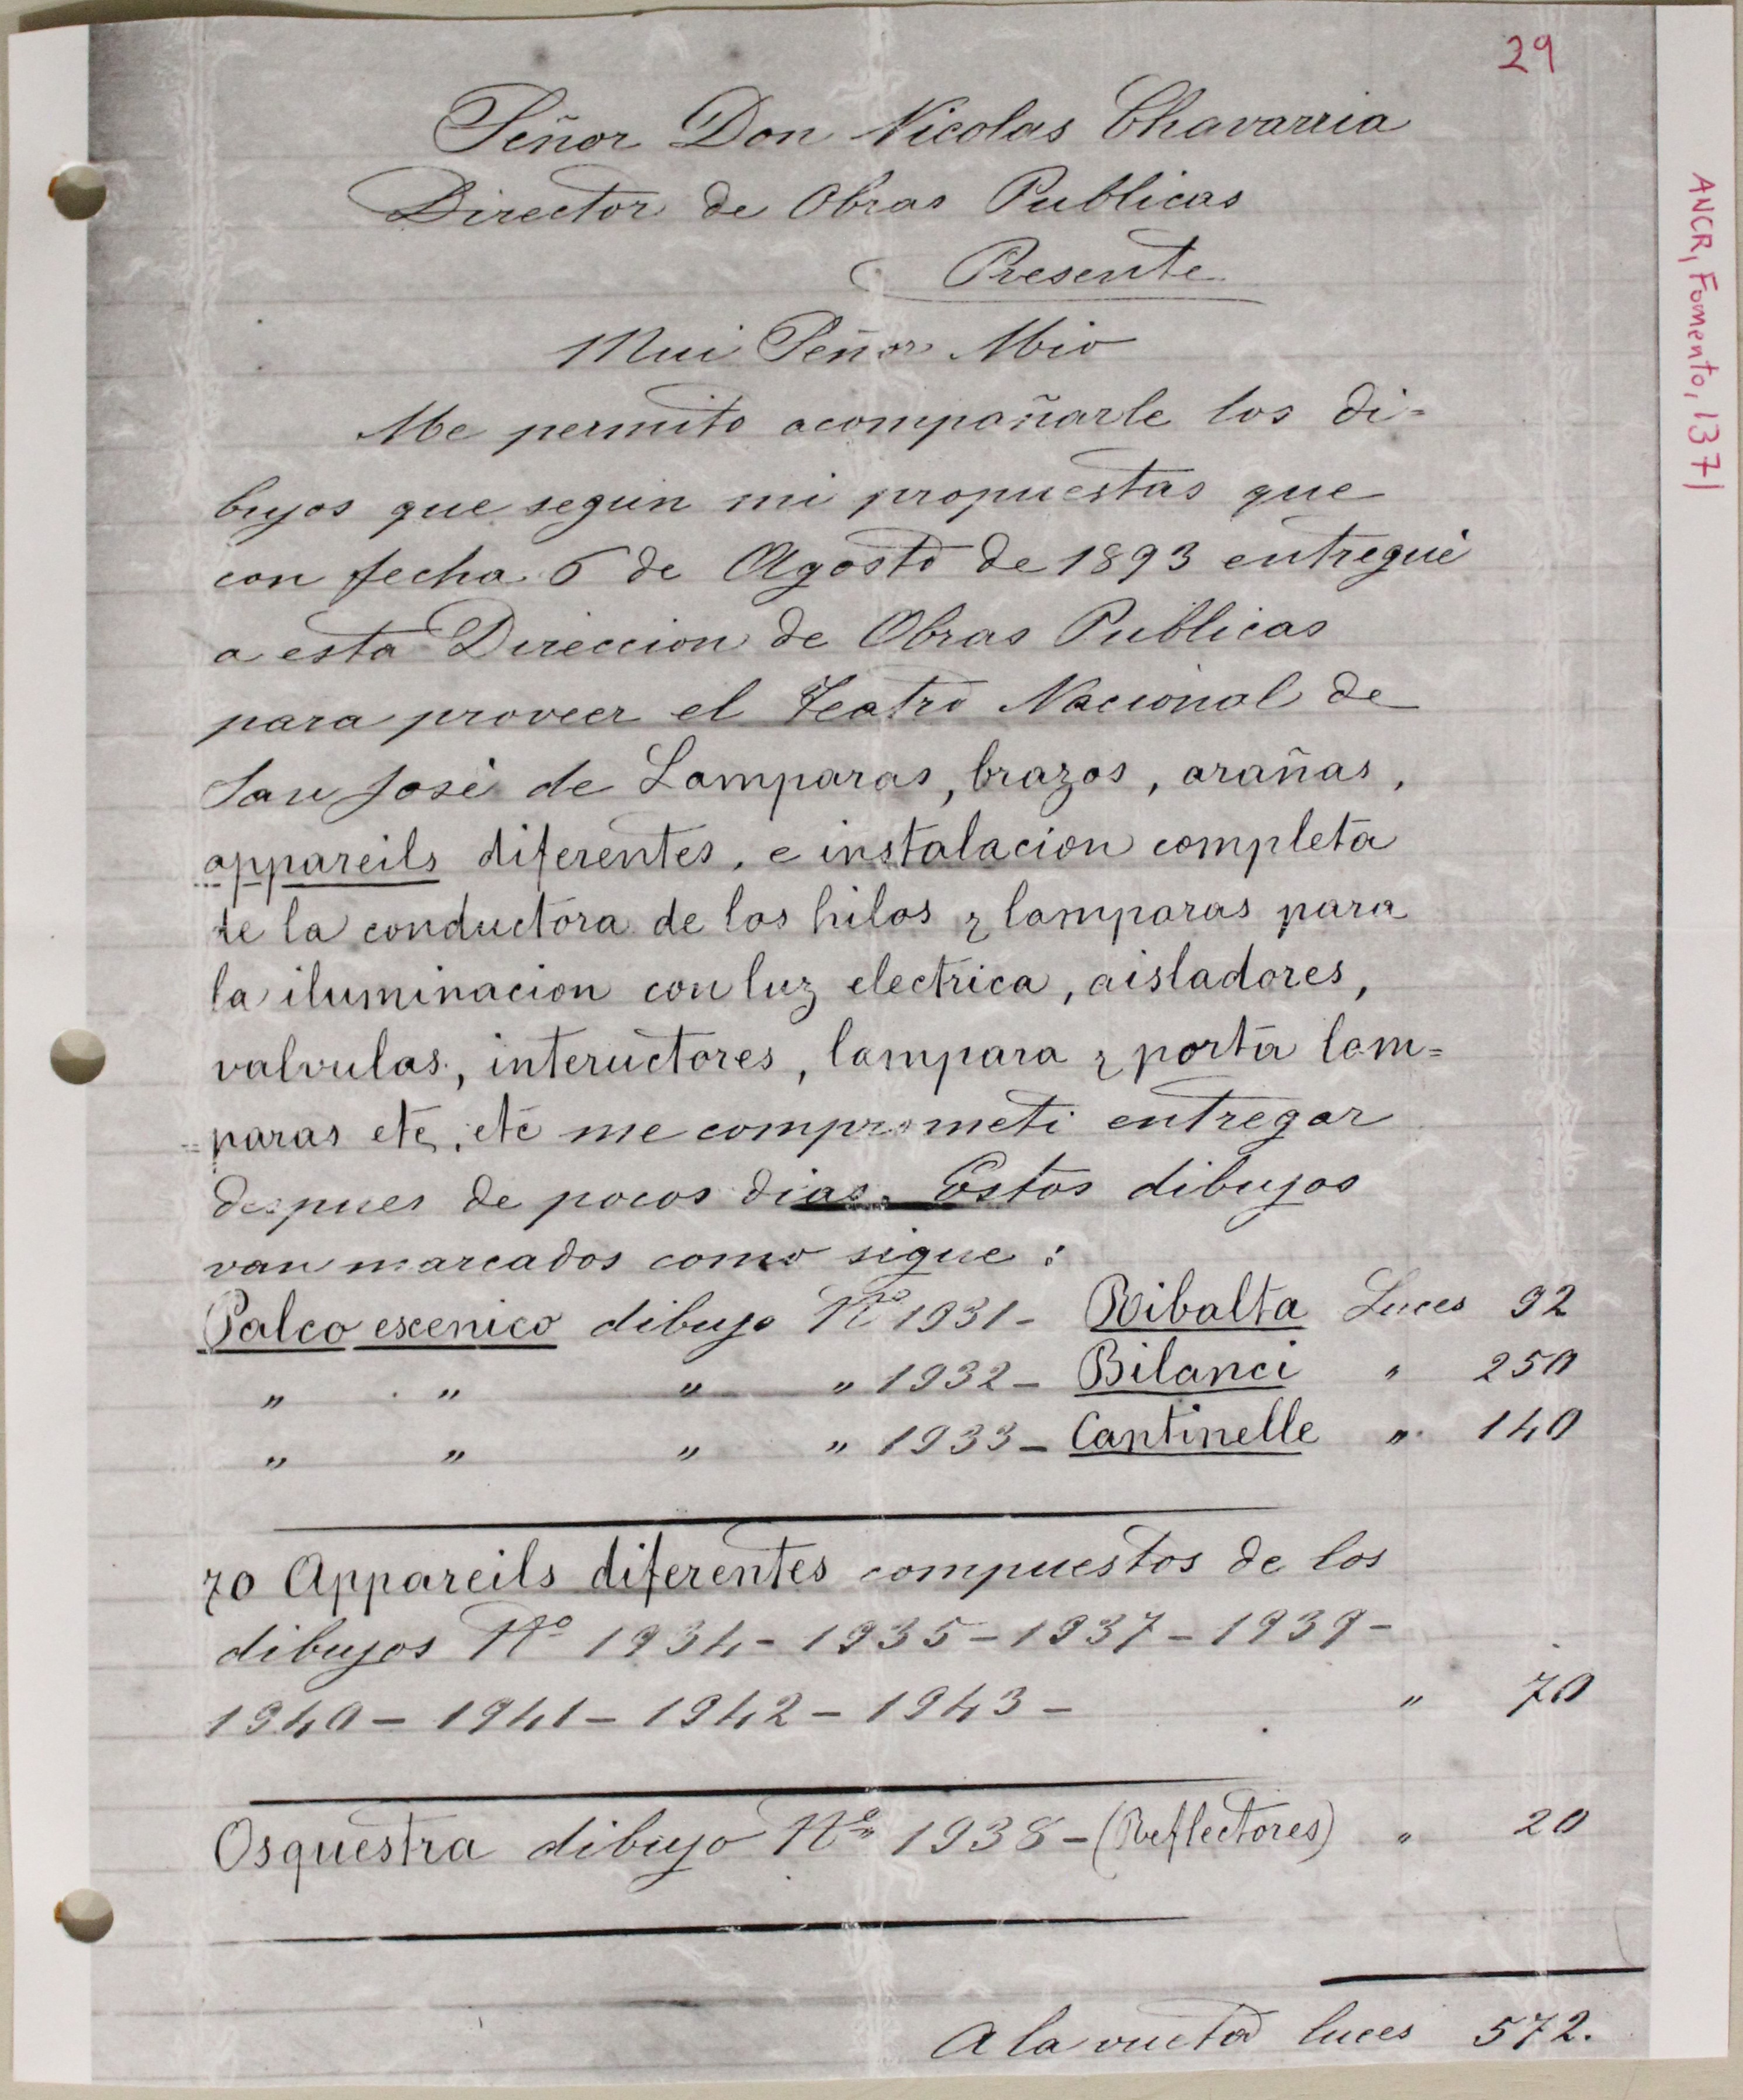 29
ANCR, Fomento, 1371
Señor Don Nicolas Chavarria
Director de Obras Publicas
Presente
Mui Señor Mio
Me permito acompañarle los di=
bujos que segun mi propuestas que
con fecha 6 de Agosto de 1893 entregué
a esta Direccion de Obras Publicas
para proveer el Teatro Nacional de
San José de Lamparas, brazos, arañas,
appareils diferentes, e instalacion completa
de la conductora de los hilos y lamparas para
la iluminacion con luz electrica, aisladores,
valvulas, inteructores, lampara y porta lam=
=paras etc, etc me comprometi entregar
despues de pocos dias. Estos dibujos
van marcados como sigue:
Palco escenico dibujo No 1931- Ribalta Luces 92
" " " " 1932- Bilanci " 250
" " " " 1933- Cantinelle " 140
70 Appareils diferentes compuestos de los
dibujos No 1934-1935-1937-1939-
1940-1941-1942-1943- " 70
Osquestra dibujo No 1938-(Reflectores) " 20
A la vuelta luces 572.